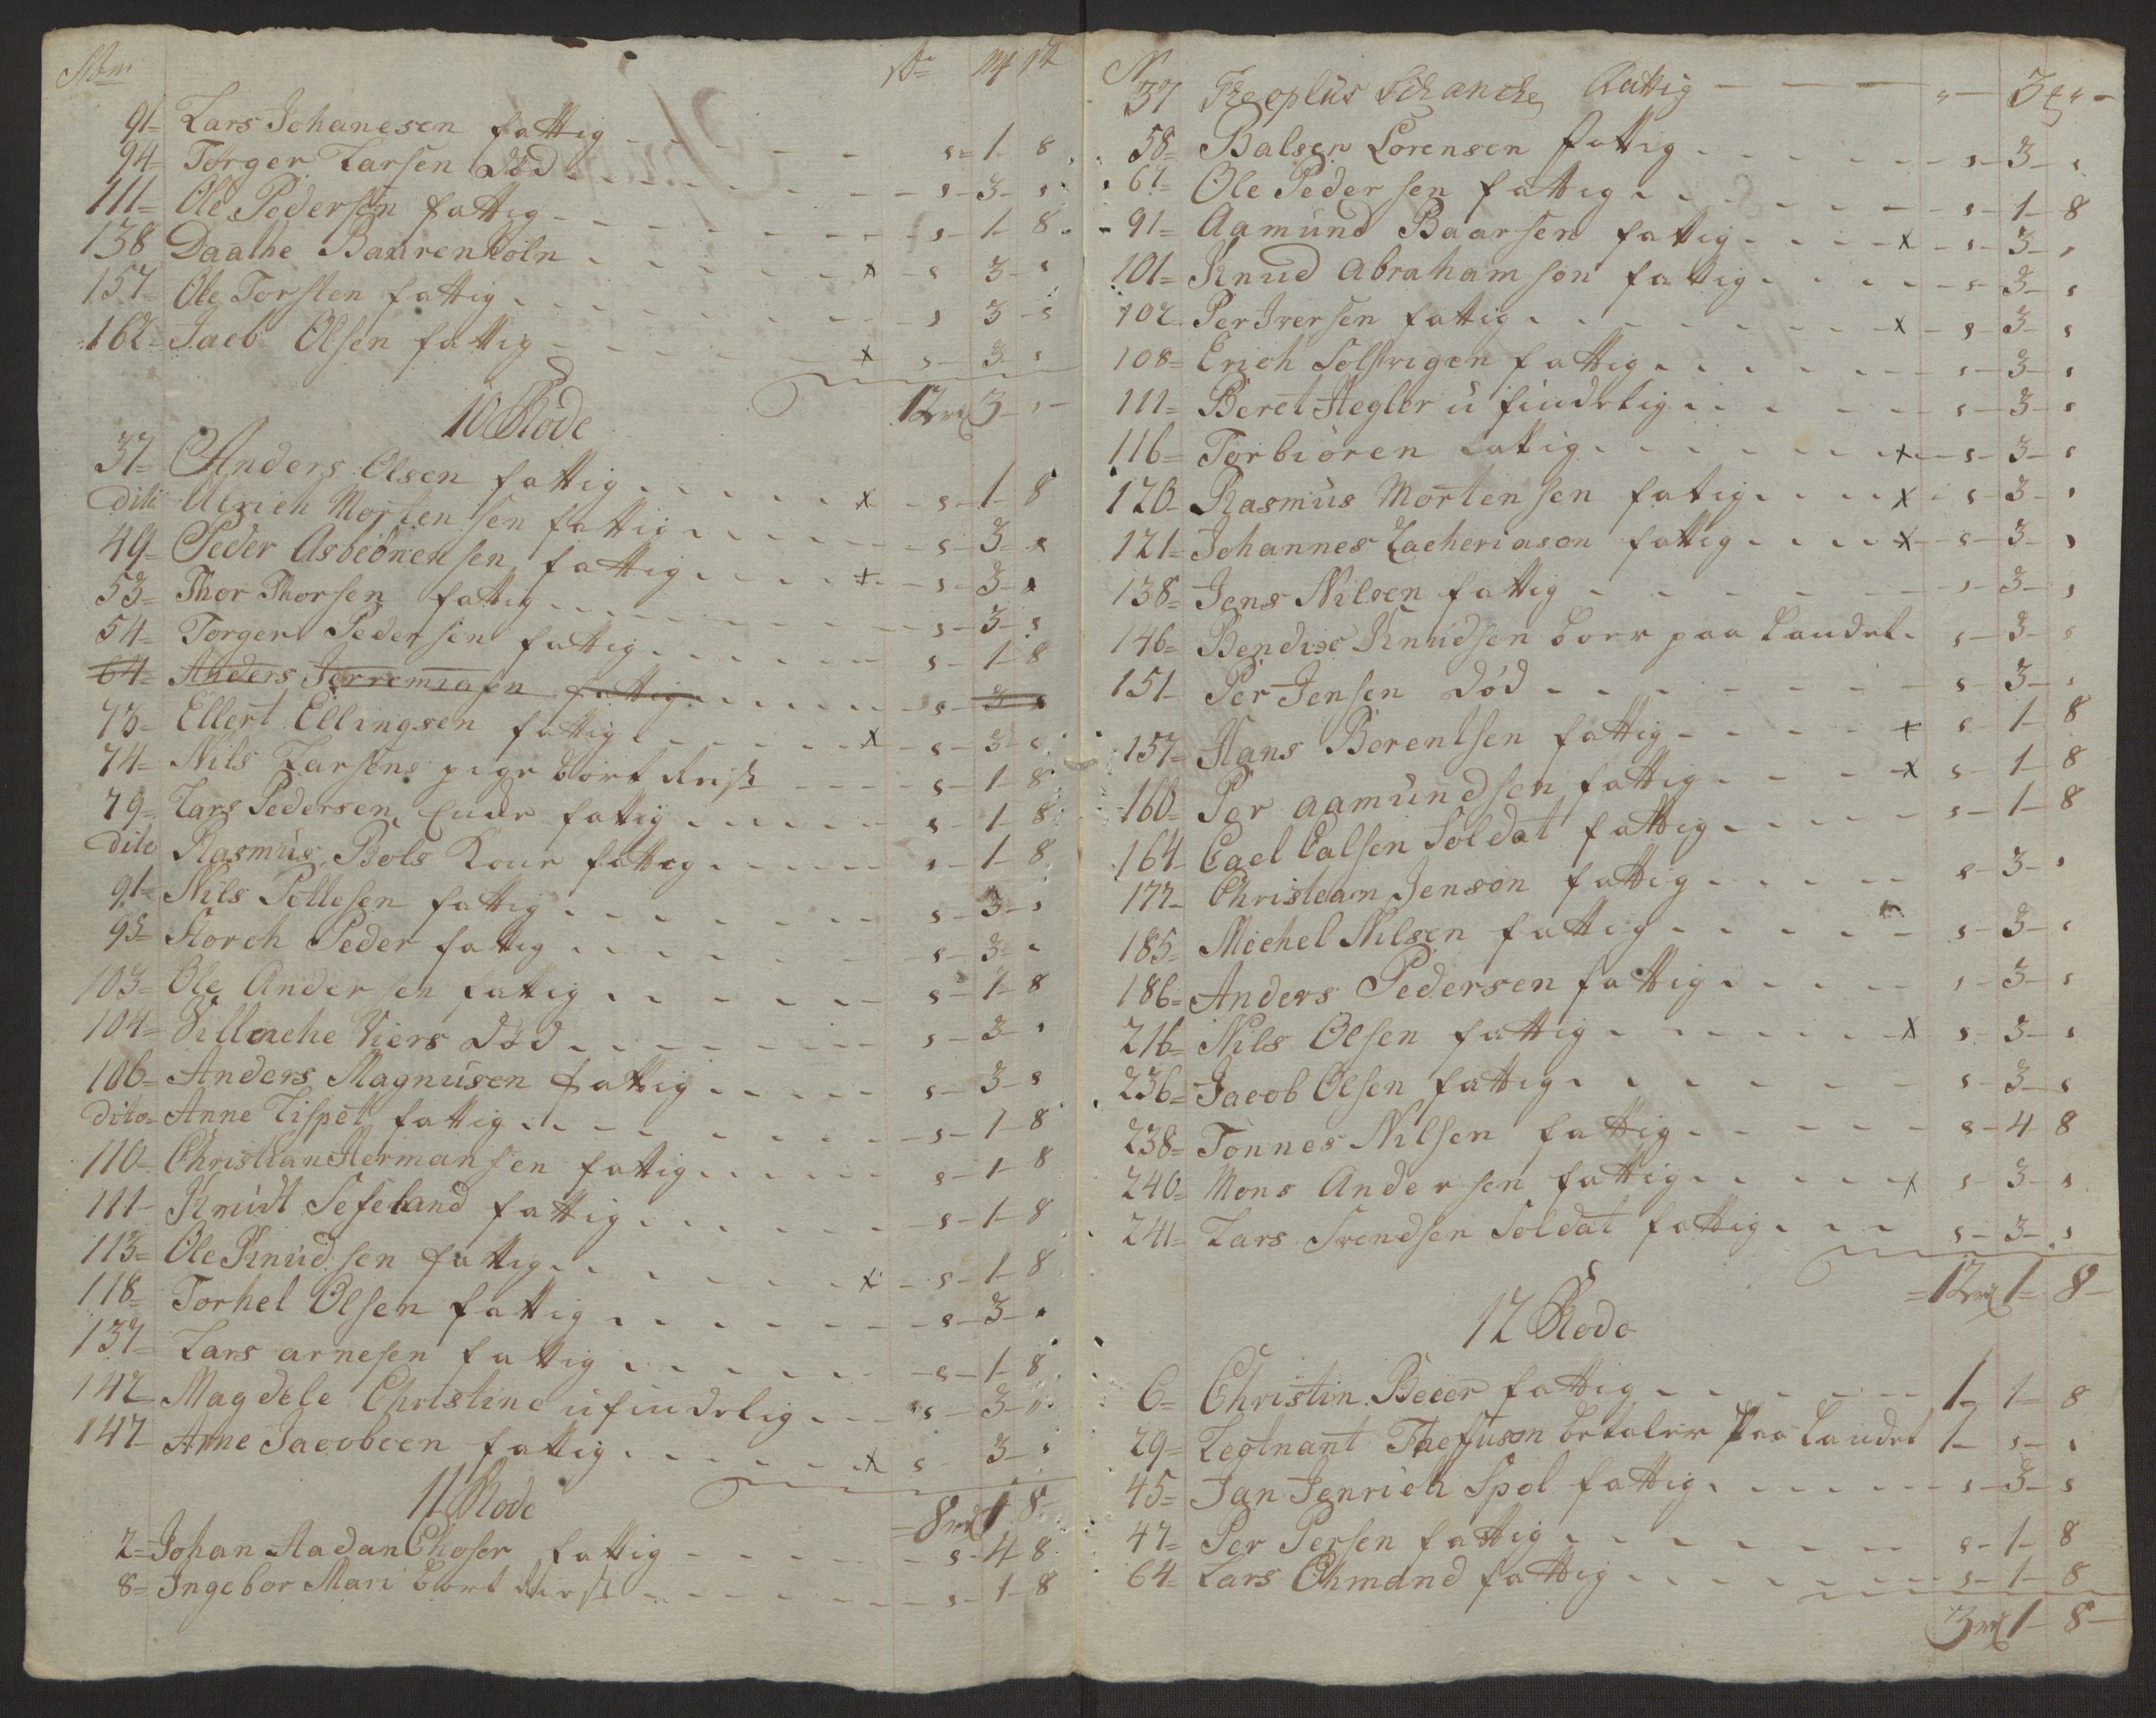 91= Lars Johanesen fattig - - - s= 1- 8
94= Torger Larsen død - - - s- 3- s
111= Ole Pedersen fattig - - - s- 1- 8
138 Daathe Baarenholn - - - x - s 3- s
157= Ole Torsten fattig - - - s 3 - s
162= Jacb Olsen fattig - - - x s- 3- s
12 rd 3 - s -
10 Rode
37= Anders Olsen fattig - - - x - s- 1- 8
dito Ulrich Mortensen fattig - - - s- 3- s
49= Peder Asbiönensen fattig - - - x - s- 3- s
53= Thor Thorsen fattig - - - s- 3- s
54= Torger Pedersen fattig - - - s- 1- 8
64= Anders Jerremiasen fattig - - - s- 3- s
73= Ellert Ellingsen fattig - - - x - s- 3- s
74= Nils Larsens pige bort Reist - - - s- 1- 8
79= Lars Pedersen fattig - - - s- 1- 8
dito Rasmus Bols Kone fattig - - - s- 1- 8
91= Nils Pettesen fattig - - - s- 3- s
95= Storch Peder fattig - - - s- 3- s
103= Ole Andersen fattig - - - s- 1- 8
104= Viers død - - - s- 3- s
106= Anders Magnusen fattig - - - s- 3- s
dito= Anne Lispet fattig - - - s- 1- 8
110= Christian Hermansen fattig - - - s- 1- 8
111- Knudt Sefeland fattig - - - s- 1- 8
113= Ole Knudsen fattig - - - x - s- 1- 8
118= Torkel Olsen fattig - - - s- 3- s
137= Lars arnesen fattig - - - s- 1- 8
142= Magdele Christine ufindelig - - - s- 3- s
147- Arne Jacobcen fattig - - - x s- 3- s
= 8 rd 1 8-
11 Rode
2= Johan Aadan fattig - - - s- 4- 8
8= Ingebor Mari bort Reist - - - s- 1- 8
N
37 Theoplus Schanche fattig - - - 3 -
58= Balser Lorensen fattig - - - s- 3- s
67= Ole Pedersen fattig - - - s- 1- 8
91= Aamund Baarsen fattig - - - x - s- 3- s
101= Knud Abrahamson fattig - - - s- 3- s
102- Per Iversen fattig - - - x - s- 3- s
108= Erich Solfrigen fattig - - - s- 3- s
111= Beret Hegler ufindelig - - - s- 3- s
116= Torbiören fattig - - - x - s- 3- s
120- Rasmus Mortensen fatig - - - x - s- 3- s
121= Johannes Zacheriason fattig - - - x - s- 3- s
138= Jens Nilsen fattig - - - s- 3- s
146= Bendix Knudsen boer paa Landet - s- 3- s
151- Per Jensen død - - - s- 3- s
157= Hans Berentsen fattig - - - x s- 1- 8
160= Per aamundsen fattig - - - x s- 1- 8
164- Cael Calsen Soldat fattig - - - s- 1- 8
177- Christean Jenson fattig - - - s- 3- s
185= Michel Nilsen fattig - - - s- 3- s
186= Anders Pedersen fattig - - - s- 3- s
216= Nils Olsen fattig - - - x s 3- s
236= Jacob Olsen fattig - - - s- 3- s
238= Tonnes Nilsen fattig - - - s- 4 8
240= Mons Andersen fattig - - - x s- 3- s
241= Lars Svendsen Soldat fattig - - - s- 3- s
= 12 rd 1- 8-
12 Rode
6= Christin Beeer fattig - - - 1- 1- 8
29= Leotnant betaler paa Landet 1- s- s
45= Jan Jenrich Spol fattig - - - s- 3- s
47= Per Persen fattig - - - s- 1- 8
64= Lars Ehmand fattig - - - s- 1- 8
3 rd 1- 8-